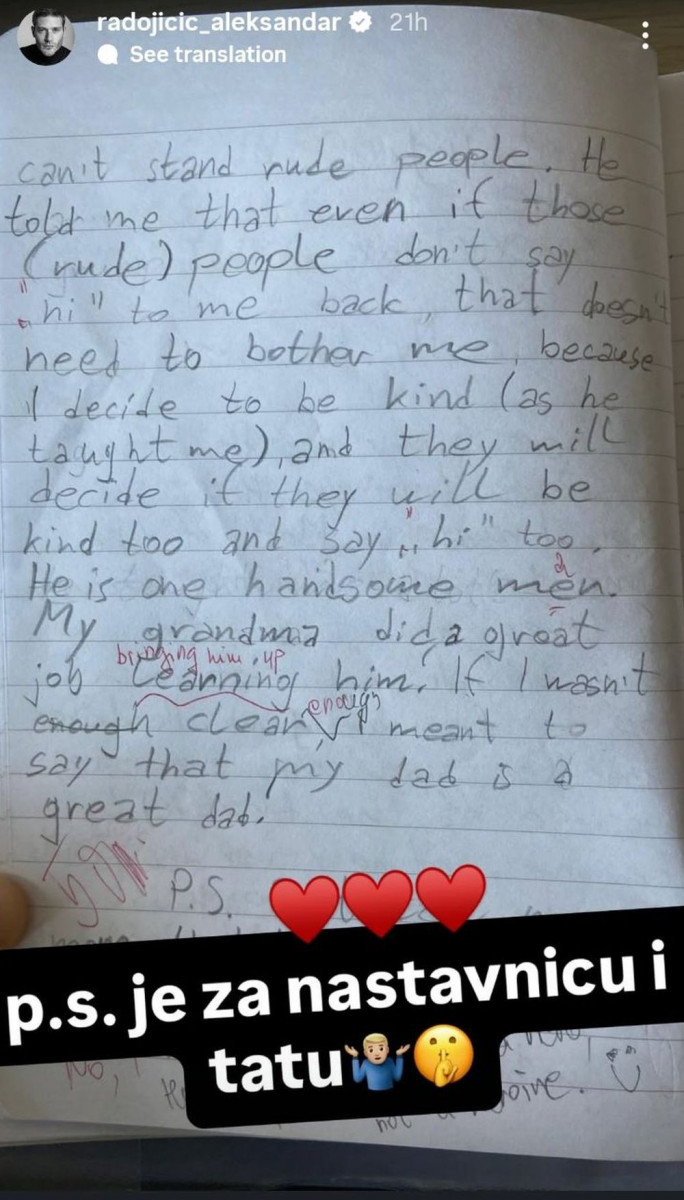 radojicic_aleksandar 21h
See translation
can't stand rude people. He
told me that even if those
(rude) people don't say
„hi" to me back, that doesn't
need to bother me, because
I decide to be kind (as he
taught me), and they will
decide if they will be
kind too and say „hi" too.
a
He is one handsome men.
My grandma did a great
bringing him up
job learning him. If I wasn't
enough
enough clear, I meant to
say that my dad is a
great dad.
P.S.
p.s. je za nastavnicu i
tatu
No,
not